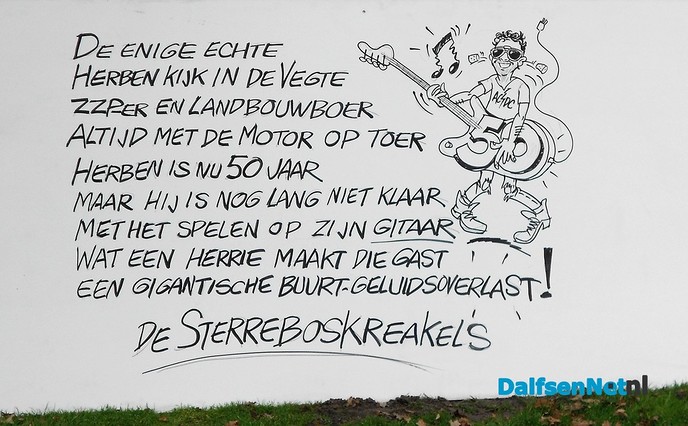 DE ENIGE ECHTE
HERBEN KIJK IN DE VEGTE
ZZPER EN LANDBOUWBOER
ALTIJD MET DE MOTOR OP TOER
HERBEN IS NU 50 JAAR
MAAR HIJ IS NOG LANG NIET KLAAR
MET HET SPELEN OP ZIJN GITAAR
WAT EEN HERRIE MAAKT DIE GAST
EEN GIGANTISCHE BUURT-GELUIDSOVERLAST!
DE STERREBOSKREAKELS
AC/DC
50
DalfsenNet.nl